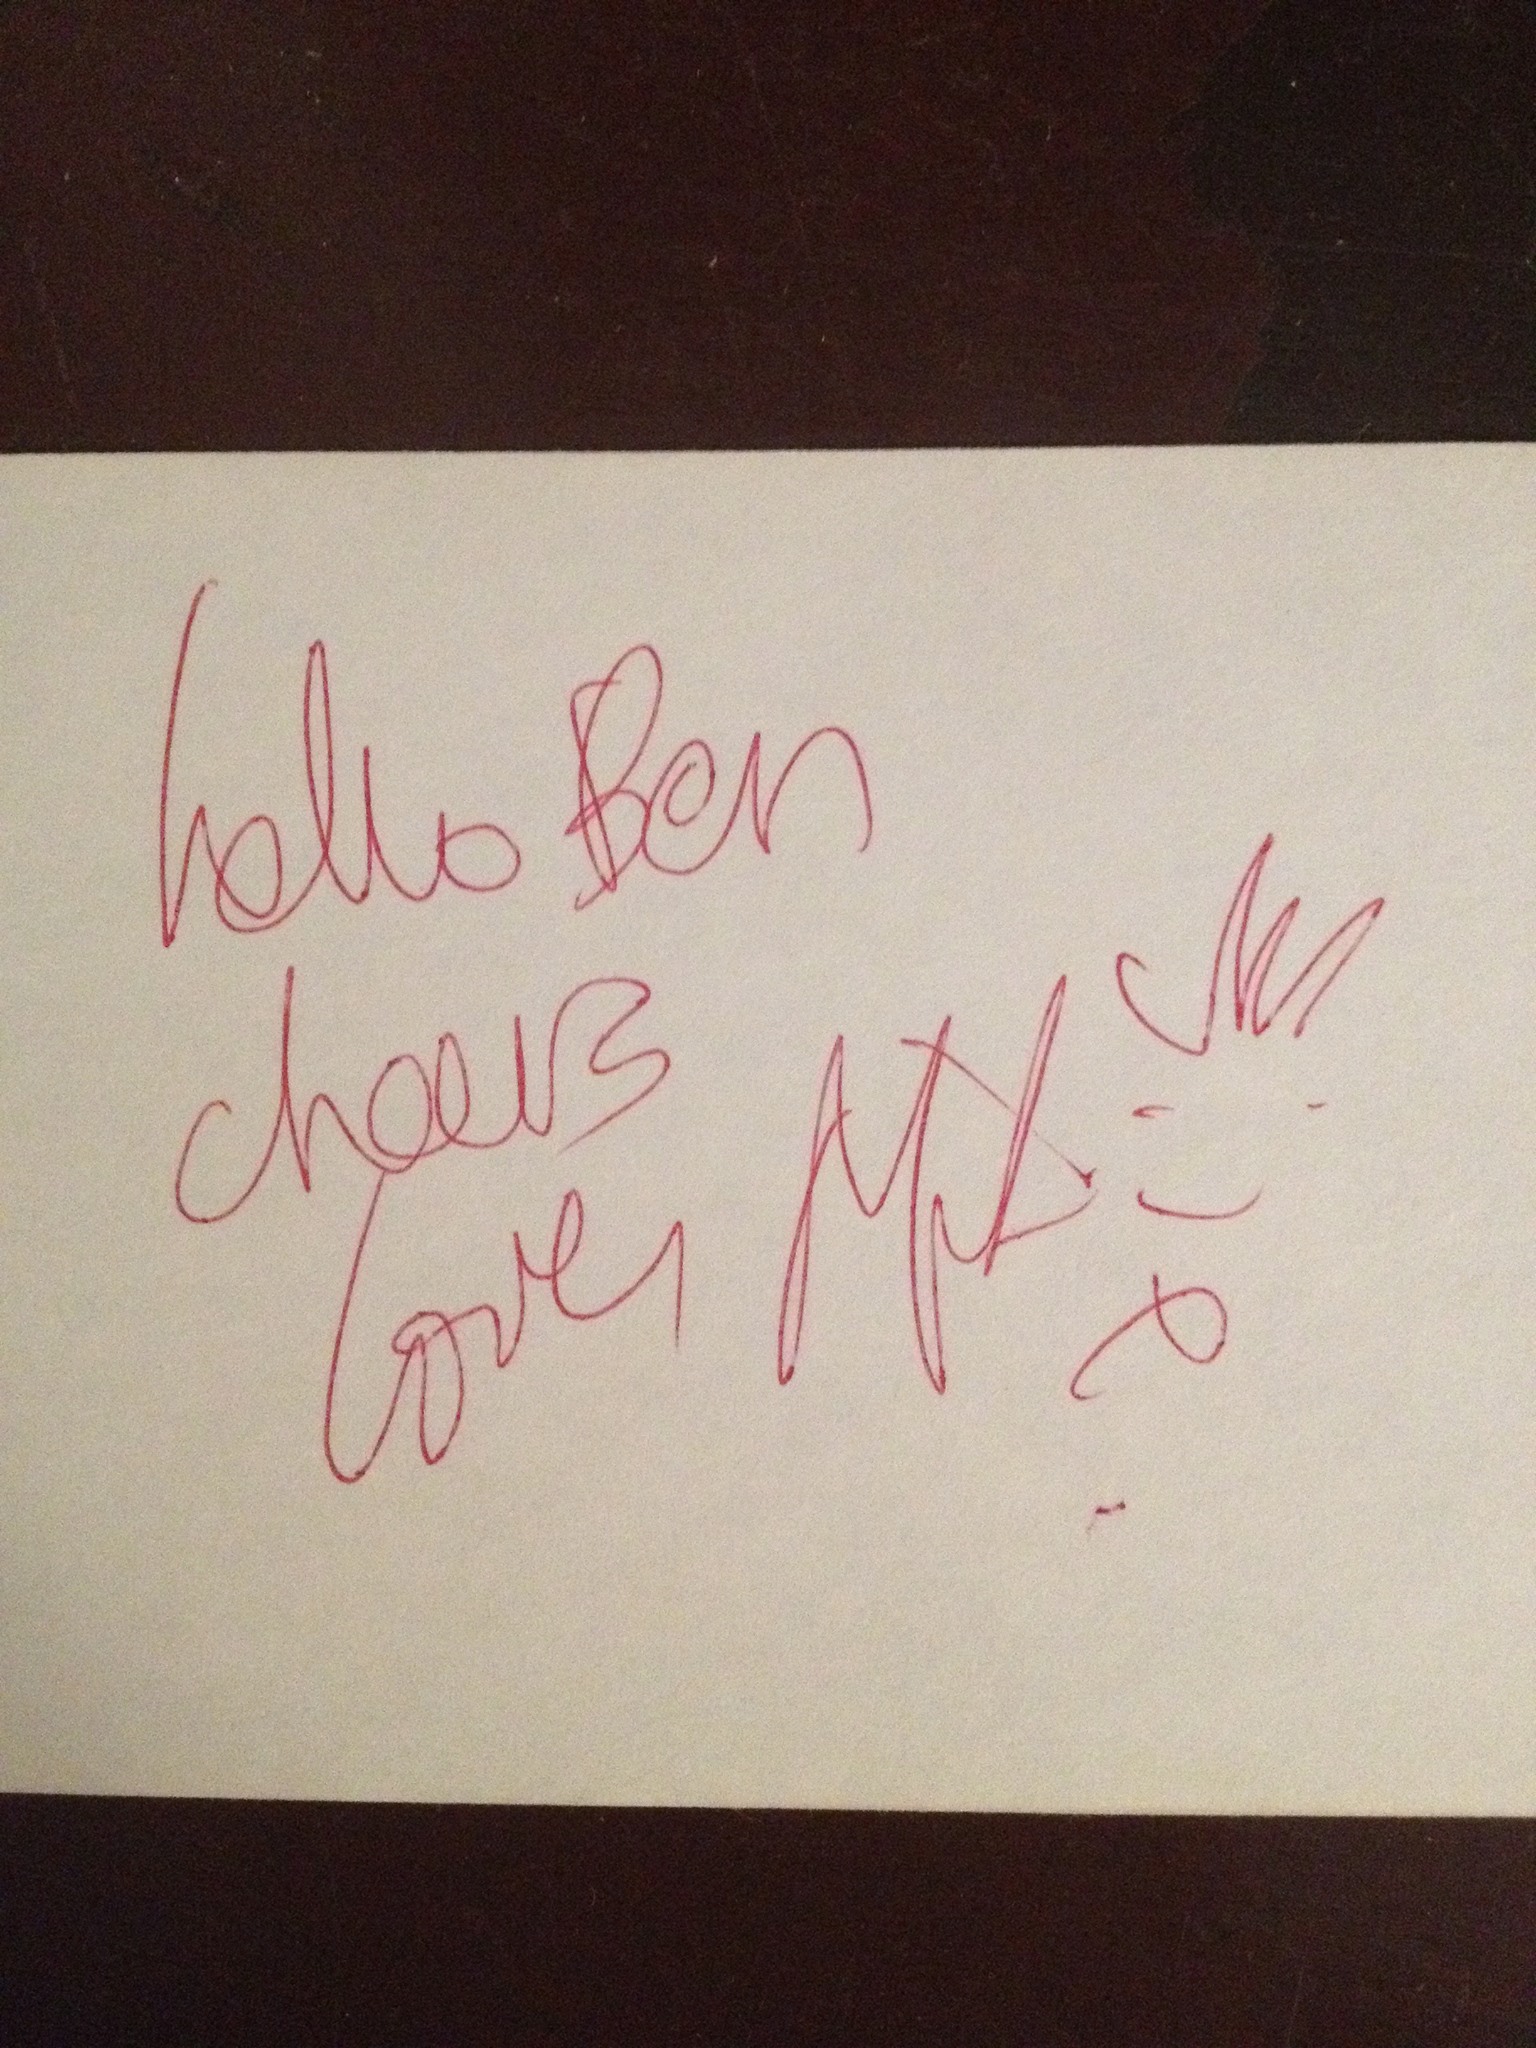 hello Ben
cheers
Love,